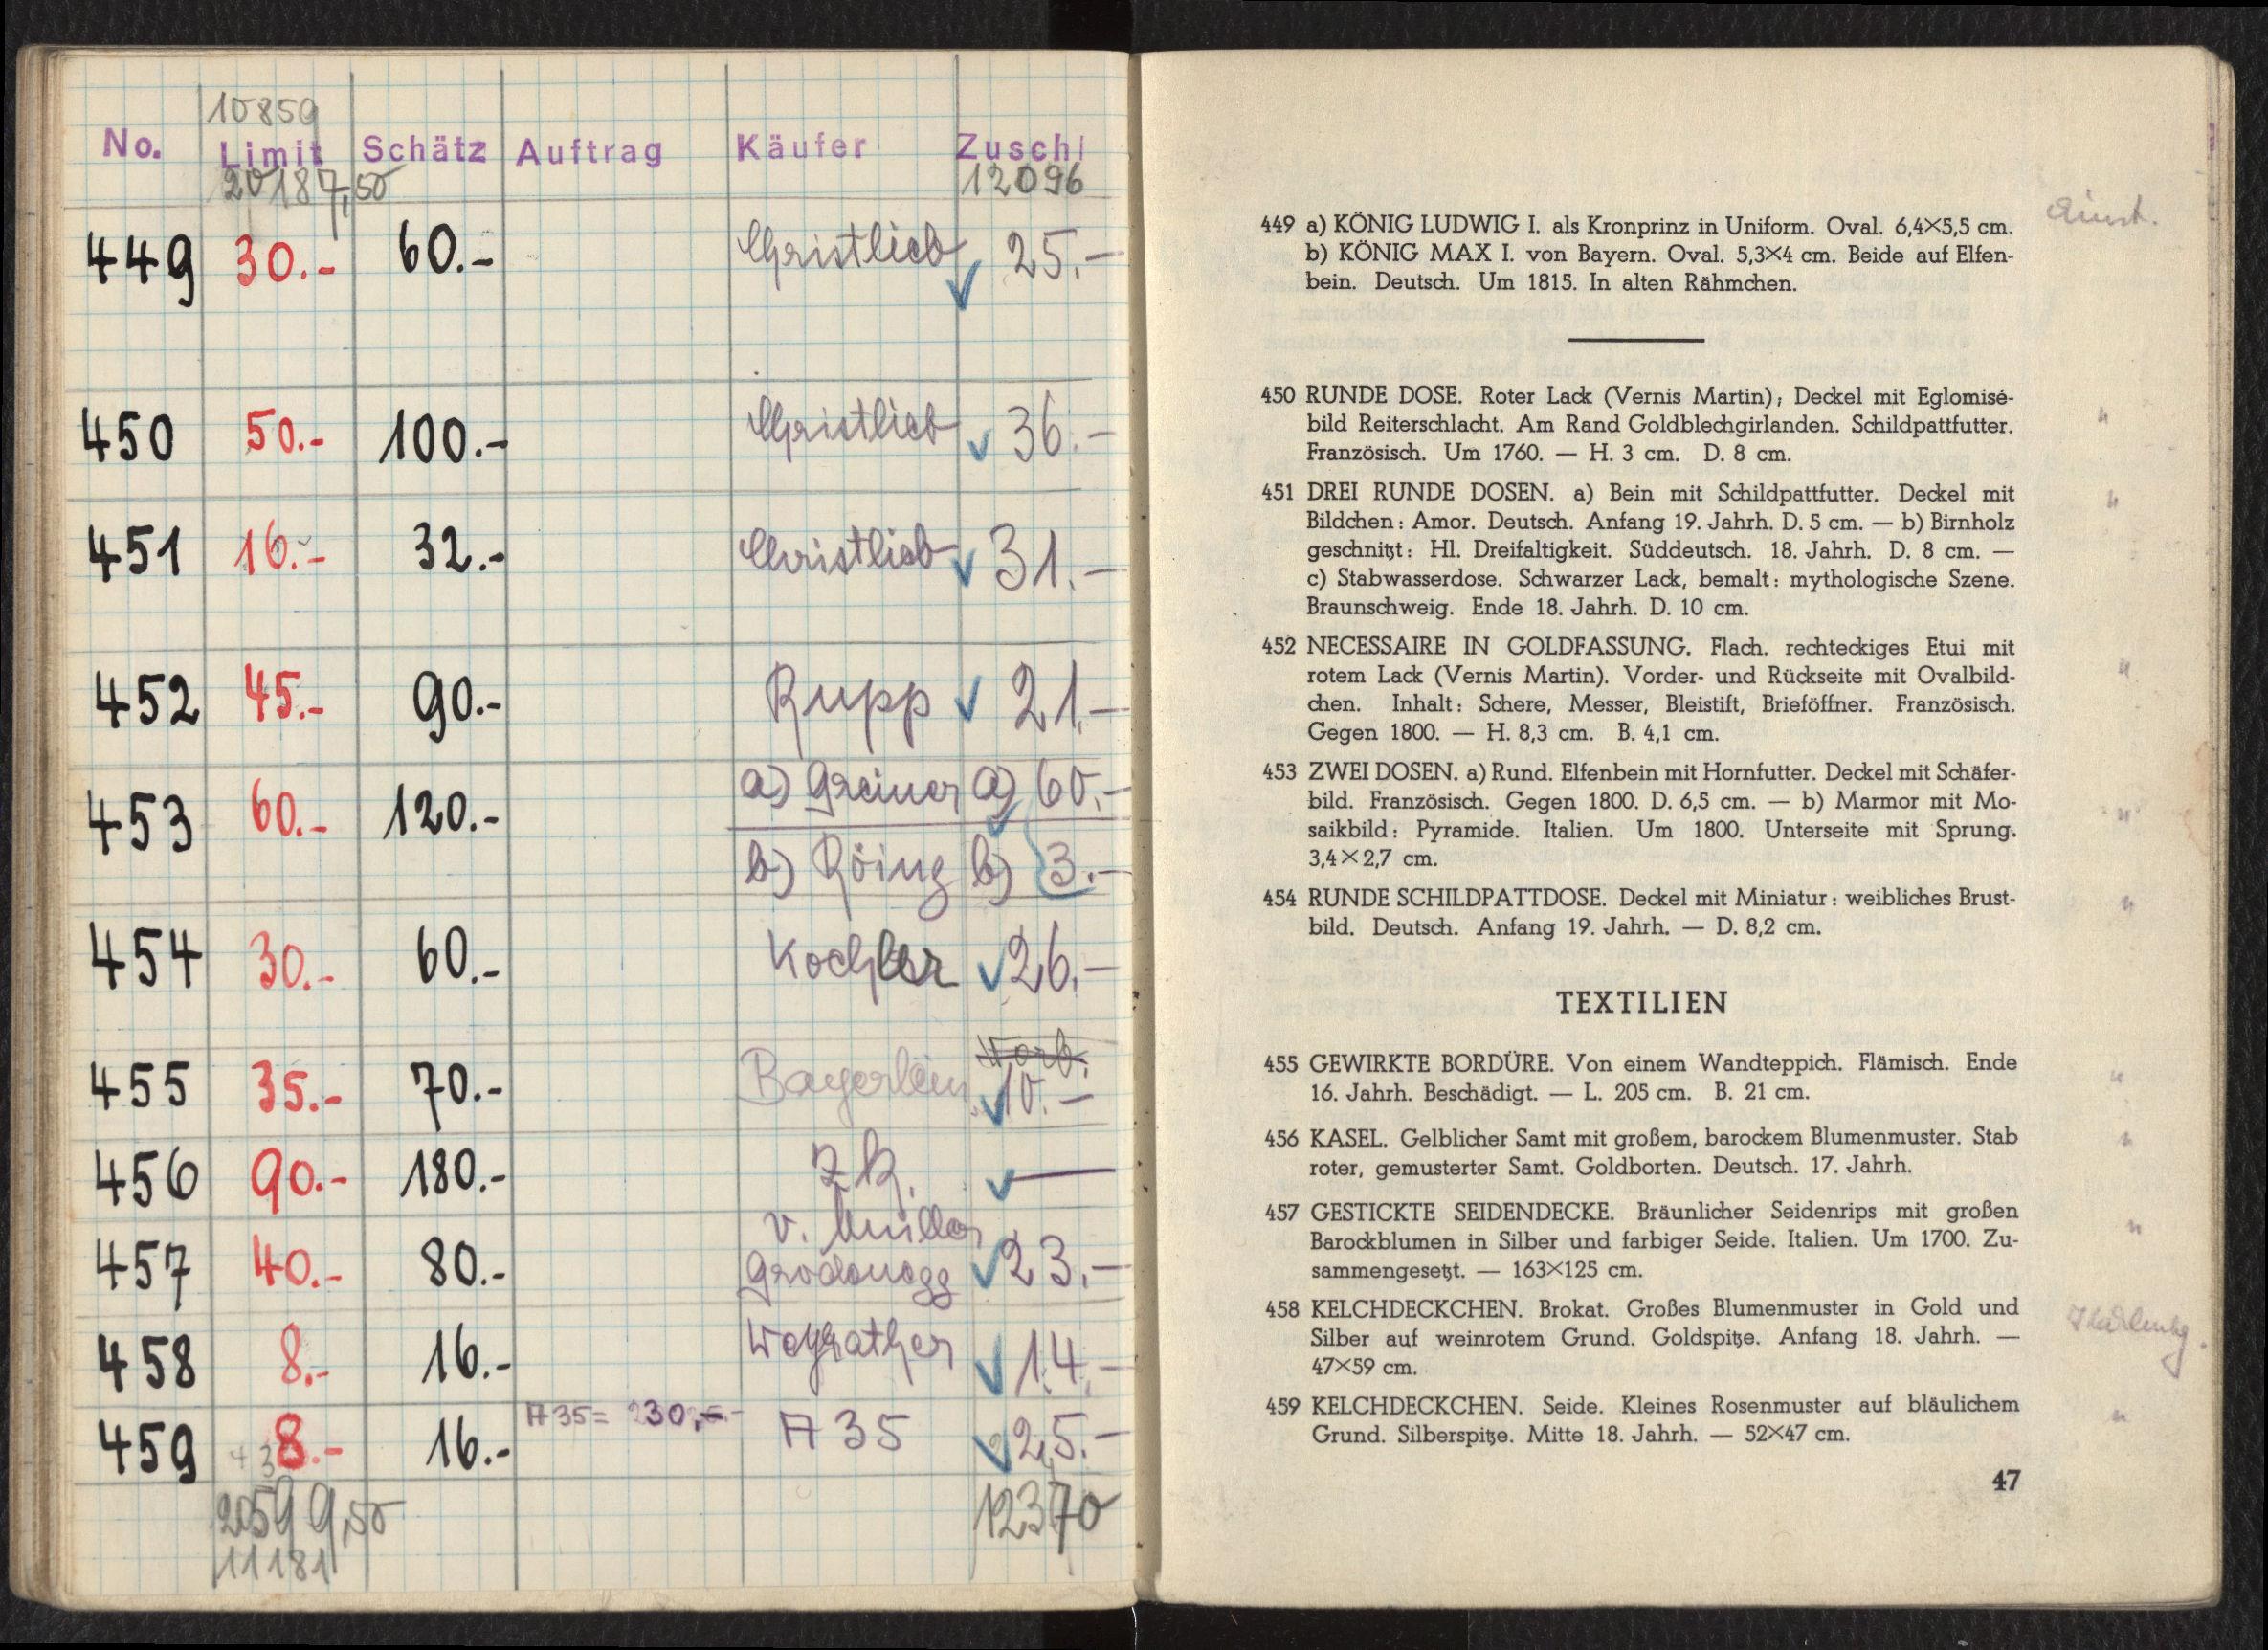 10859
No. Limit Schätz Auftrag Käufer Zuschl
20187,50 12096
449 30.- 60.- Christlieb 25.-
450 50.- 100.- Christlieb 36.-
451 16.- 32.- Christlieb 31.-
452 45.- 90.- Rupp 21.-
453 60.- 120.- a) Greiner a) 60.-
b) Röing b) 3.-
454 30.- 60.- Koehler 26.-
Vorb.
455 35.- 70.- Bayerlein 10.-
456 90.- 180.- zk. —
v. Miller
457 40.- 80.- 23.-
458 8.- 16.- Weyrather 14.-
459 8.- 16.- A 35 = 230,- A 35 25.-
20599,50 12370
11181
449 a) KÖNIG LUDWIG I. als Kronprinz in Uniform. Oval. 6,4×5,5 cm.
b) KÖNIG MAX I. von Bayern. Oval. 5,3×4 cm. Beide auf Elfen-
bein. Deutsch. Um 1815. In alten Rähmchen.
450 RUNDE DOSE. Roter Lack (Vernis Martin); Deckel mit Eglomisé-
bild Reiterschlacht. Am Rand Goldblechgirlanden. Schildpattfutter.
Französisch. Um 1760. — H. 3 cm. D. 8 cm.
451 DREI RUNDE DOSEN. a) Bein mit Schildpattfutter. Deckel mit
Bildchen: Amor. Deutsch. Anfang 19. Jahrh. D. 5 cm. — b) Birnholz
geschnitzt: Hl. Dreifaltigkeit. Süddeutsch. 18. Jahrh. D. 8 cm. —
c) Stabwasserdose. Schwarzer Lack, bemalt: mythologische Szene.
Braunschweig. Ende 18. Jahrh. D. 10 cm.
452 NECESSAIRE IN GOLDFASSUNG. Flach. rechteckiges Etui mit
rotem Lack (Vernis Martin). Vorder- und Rückseite mit Ovalbild-
chen. Inhalt: Schere, Messer, Bleistift, Brieföffner. Französisch.
Gegen 1800. — H. 8,3 cm. B. 4,1 cm.
453 ZWEI DOSEN. a) Rund. Elfenbein mit Hornfutter. Deckel mit Schäfer-
bild. Französisch. Gegen 1800. D. 6,5 cm. — b) Marmor mit Mo-
saikbild: Pyramide. Italien. Um 1800. Unterseite mit Sprung.
3,4×2,7 cm.
454 RUNDE SCHILDPATTDOSE. Deckel mit Miniatur: weibliches Brust-
bild. Deutsch. Anfang 19. Jahrh. — D. 8,2 cm.
TEXTILIEN
455 GEWIRKTE BORDÜRE. Von einem Wandteppich. Flämisch. Ende
16. Jahrh. Beschädigt. — L. 205 cm. B. 21 cm.
456 KASEL. Gelblicher Samt mit großem, barockem Blumenmuster. Stab
roter, gemusterter Samt. Goldborten. Deutsch. 17. Jahrh.
457 GESTICKTE SEIDENDECKE. Bräunlicher Seidenrips mit großen
Barockblumen in Silber und farbiger Seide. Italien. Um 1700. Zu-
sammengesetzt. — 163×125 cm.
458 KELCHDECKCHEN. Brokat. Großes Blumenmuster in Gold und
Silber auf weinrotem Grund. Goldspitze. Anfang 18. Jahrh. —
47×59 cm.
459 KELCHDECKCHEN. Seide. Kleines Rosenmuster auf bläulichem
Grund. Silberspitze. Mitte 18. Jahrh. — 52×47 cm.
47